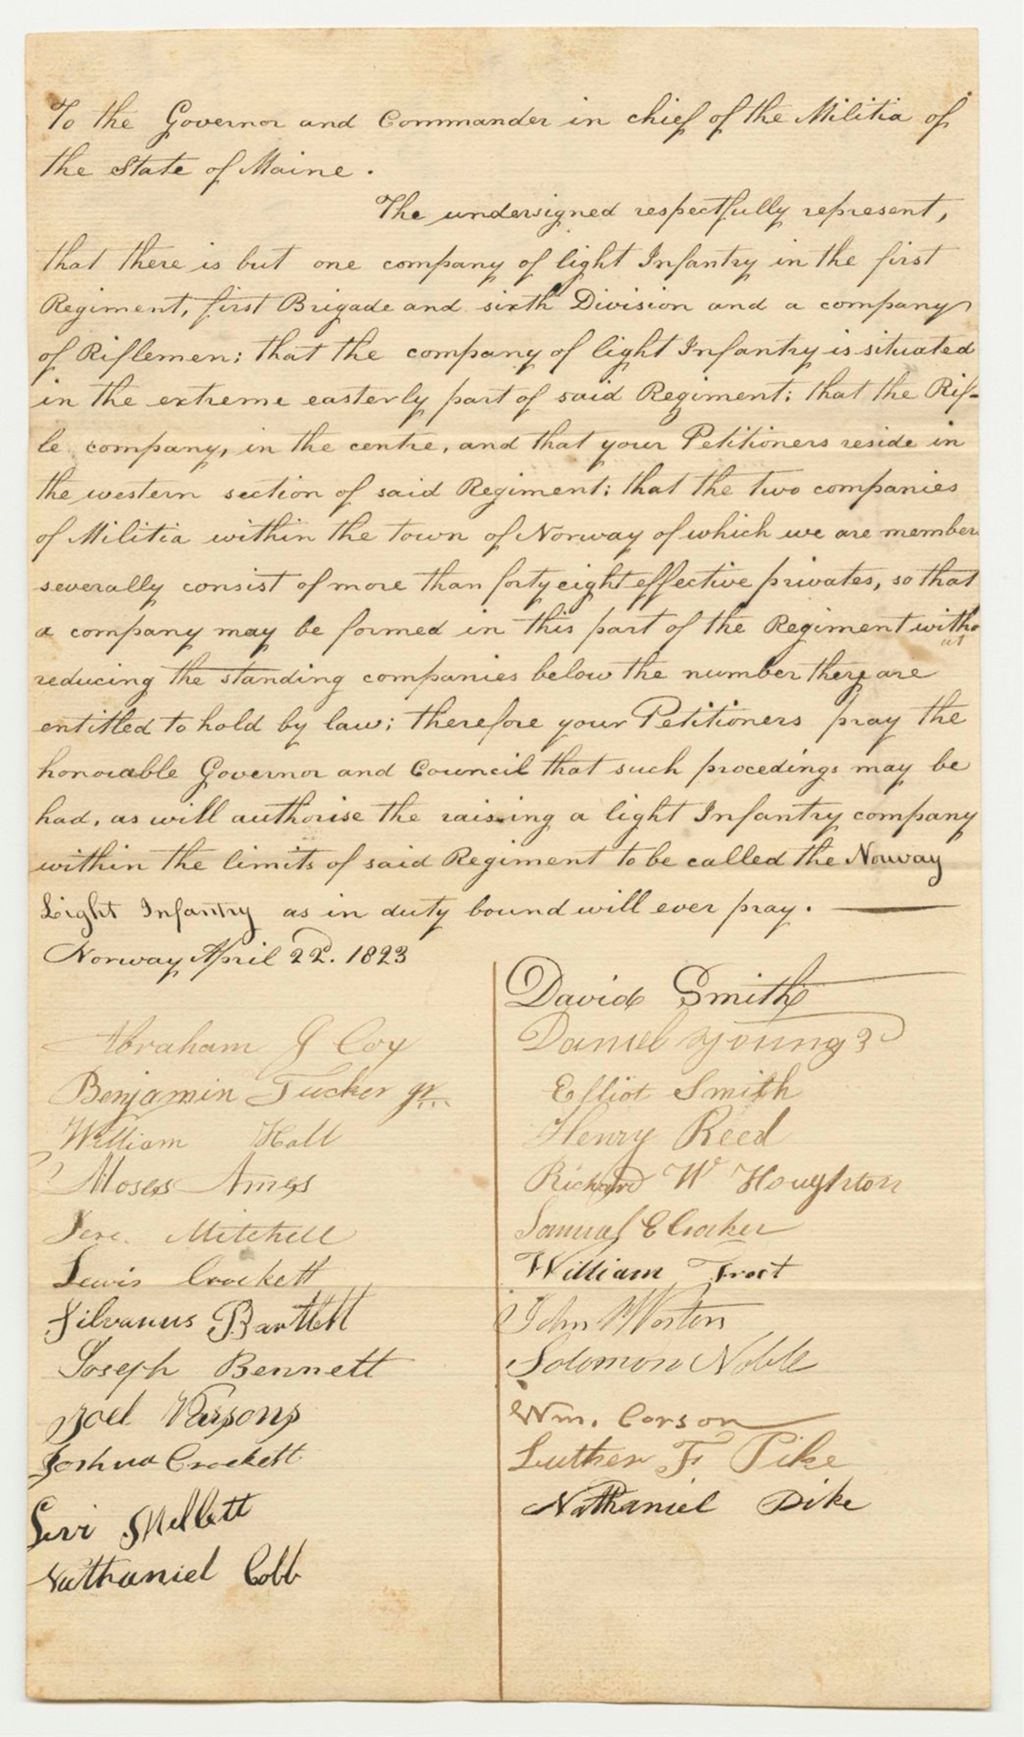 To the Governor and Commander in chief of the Militia of
the State of Maine.
The undersigned respectfully represent,
that there is but one company of light Infantry in the first
Regiment, first Brigade and sixth Division and a company
of Riflemen; that the company of light Infantry is situated
in the extreme easterly part of said Regiment; that the Rif-
le company, in the centre, and that your Petitioners reside in
the western section of said Regiment; that the two companies
of Militia within the town of Norway of which we are members
severally consist of more than forty eight effective privates, so that
a company may be formed in this part of the Regiment without
reducing the standing companies below the number they are
entitled to hold by law; therefore your Petitioners pray the
honorable Governor and Council that such procedings may be
had, as will authorise the raising a light Infantry company
within the limits of said Regiment to be called the Norway
Light Infantry as in duty bound will ever pray.
Norway April 22d. 1823
Abraham G Coy
Benjamin Tucker jr
William Hall
Moses Ames
Jere. Mitchell
Lewis Crockett
Silvanus Bartlett
Joseph Bennett
Joel Parsons
Joshua Crockett
Levi Millett
Nathaniel Cobb
David Smith
Daniel Young 3d
Elliot Smith
Henry Reed
Richard W Houghton
Samuel E
William Frost
John
Solomon Noble
Wm. Corson
Luther F Pike
Nathaniel Pike